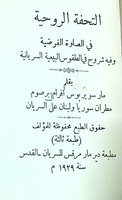 التحفة الروحية
في الصلوة الفرضية
وفيه شروح في الطقوس البيعية السريانية
بقلم
مار سويريوس أفرام برصوم
مطران سوريا ولبنان على السريان
حقوق الطبع محفوظة للمؤلف
(طبعة ثالثة)
مطبعة دير مار مرقس للسريان - القدس
سنة ١٩٢٩ م